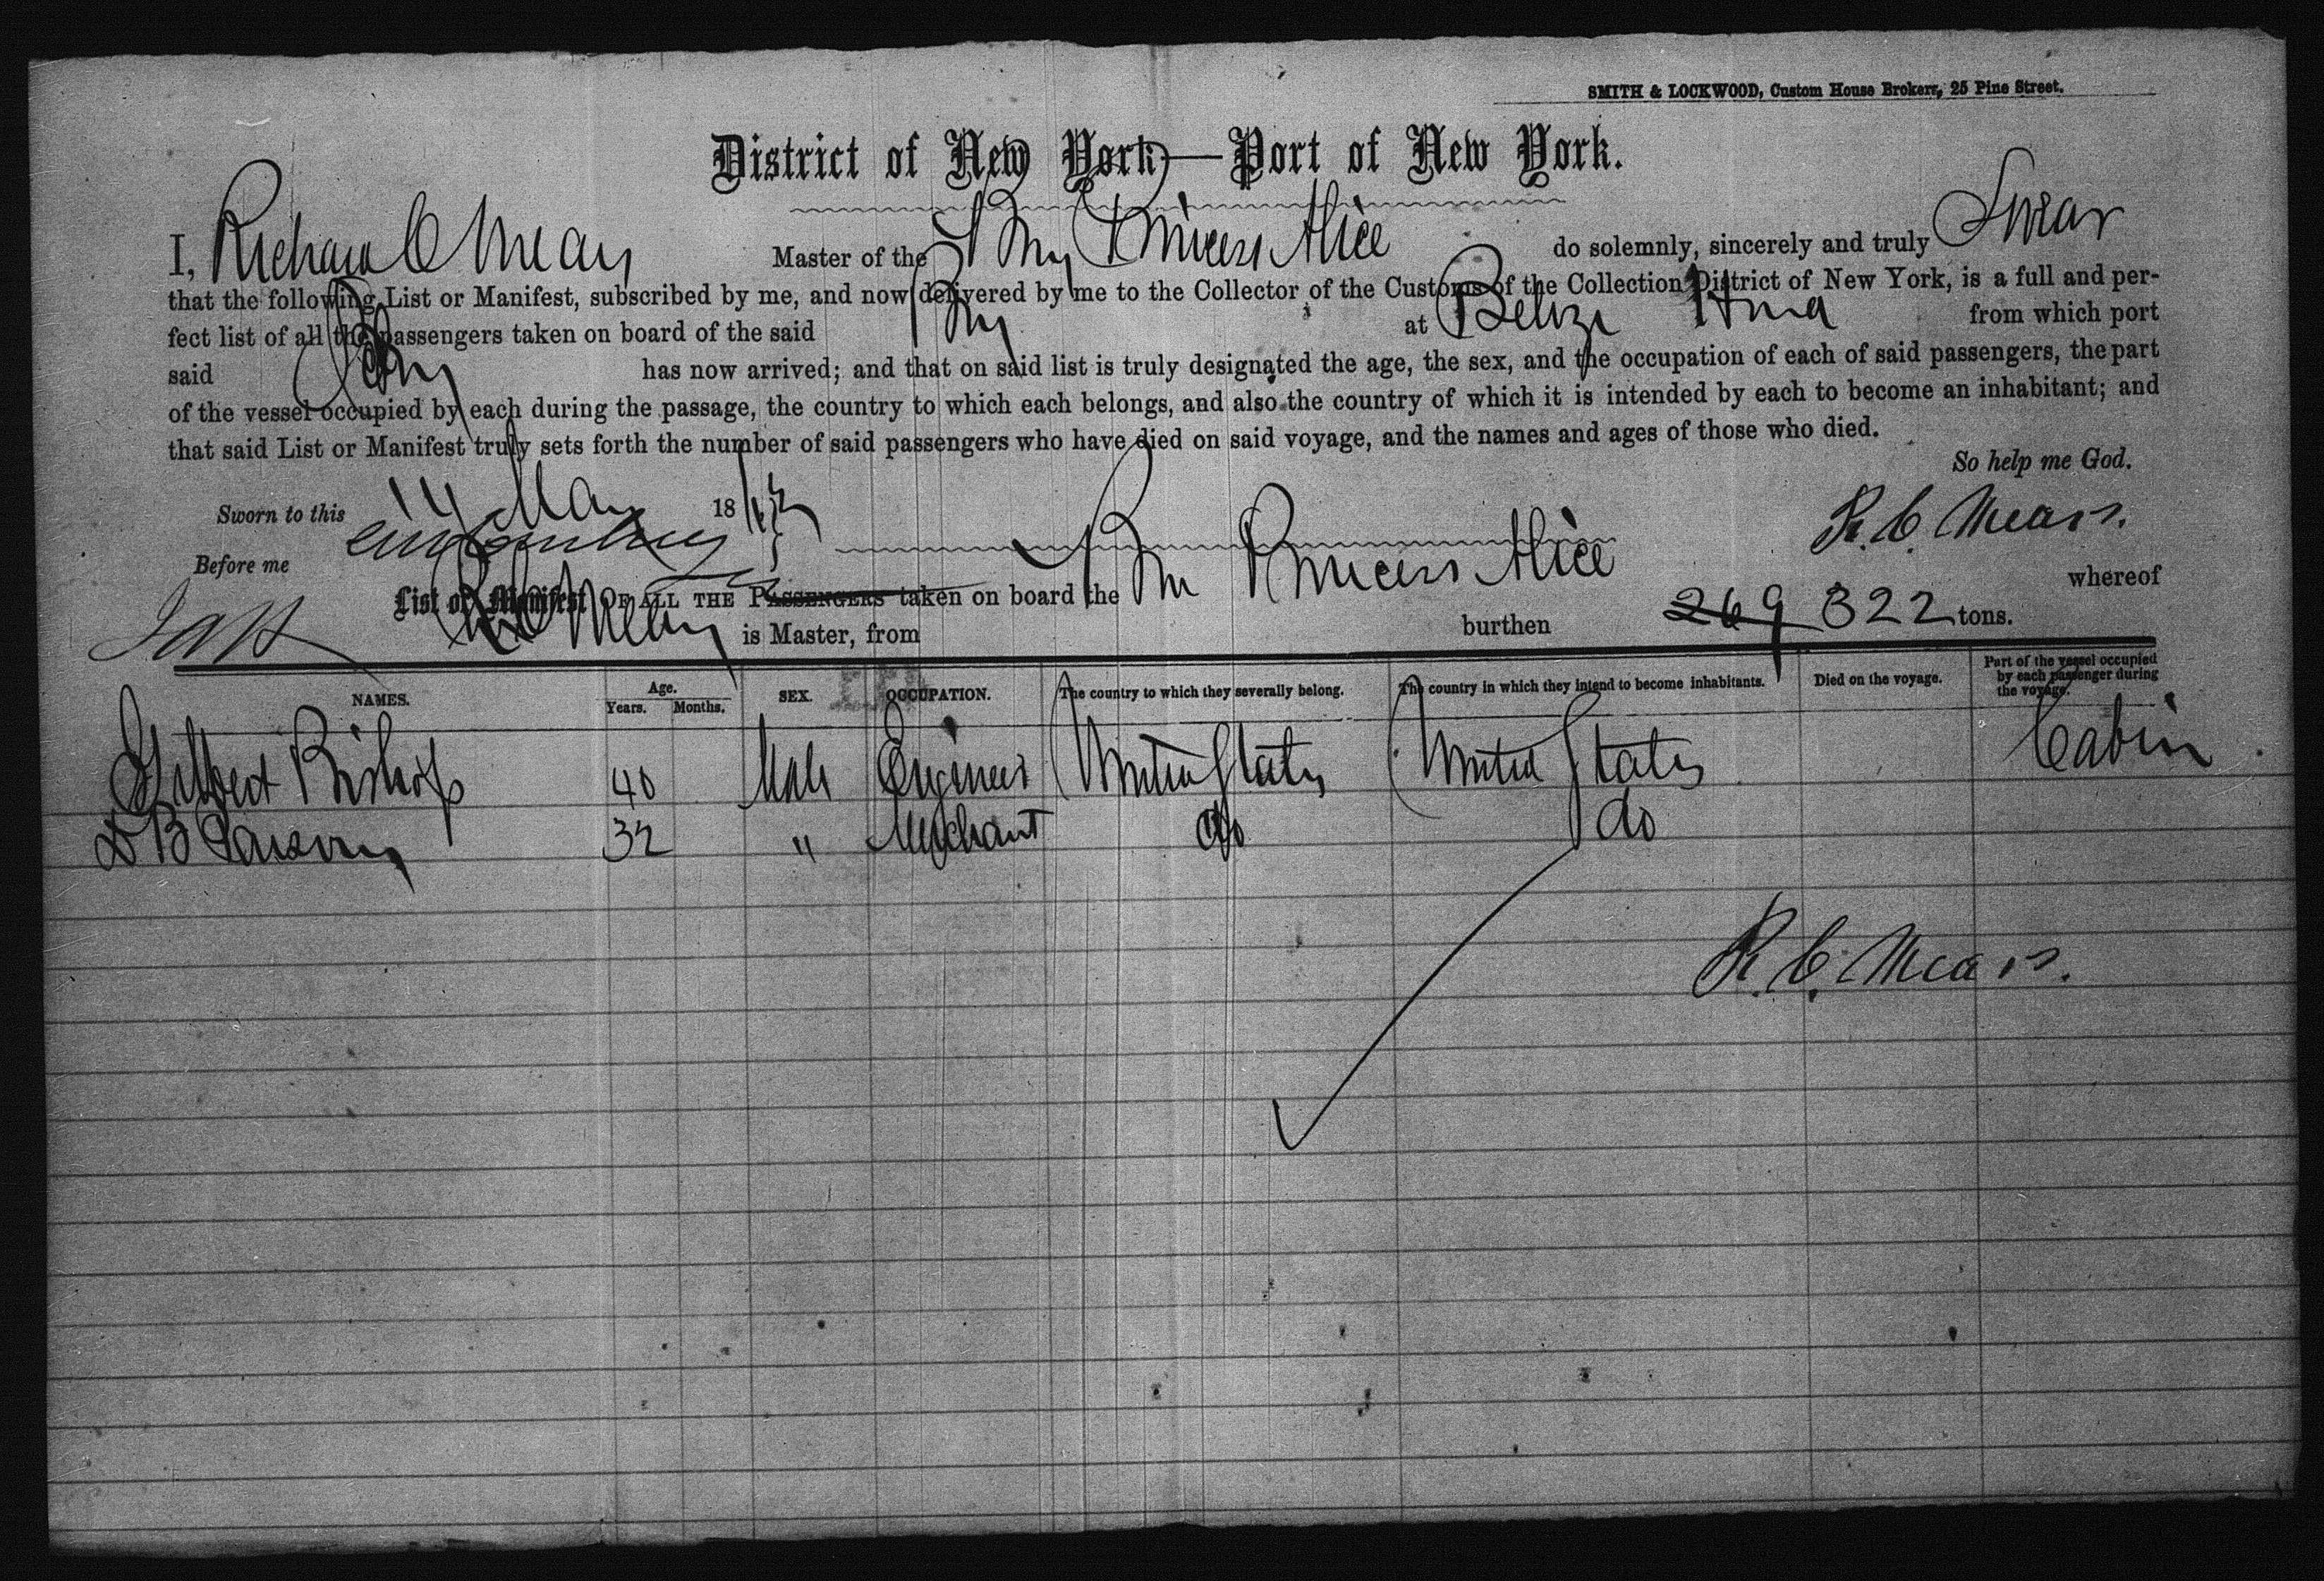 SMITH & LOCKWOOD, Custom House Brokers, 25 Pine Street.
District of New York—Port of New York.
I, Richard C Mears Master of the Princess Alice do solemnly, sincerely and truly Swear
that the following List or Manifest, subscribed by me, and now delivered by me to the Collector of the Customs of the Collection District of New York, is a full and per-
fect list of all the passengers taken on board of the said at Belize from which port
said has now arrived; and that on said list is truly designated the age, the sex, and the occupation of each of said passengers, the part
of the vessel occupied by each during the passage, the country to which each belongs, and also the country of which it is intended by each to become an inhabitant; and
that said List or Manifest truly sets forth the number of said passengers who have died on said voyage, and the names and ages of those who died.
So help me God.
Sworn to this 14 May 18
R. C. Mears.
Before me
List or Manifest OF ALL THE PASSENGERS taken on board the Princess Alice whereof
R C Mears is Master, from burthen 269 322 tons.
NAMES. Age. Years. Months. SEX. OCCUPATION. The country to which they severally belong. The country in which they intend to become inhabitants. Died on the voyage. Part of the vessel occupied by each passenger during the voyage.
Gilbert Bishop 40 Male Engineer United States United States Cabin
B Parsons 32 " Merchant do do
R. C. Mears.